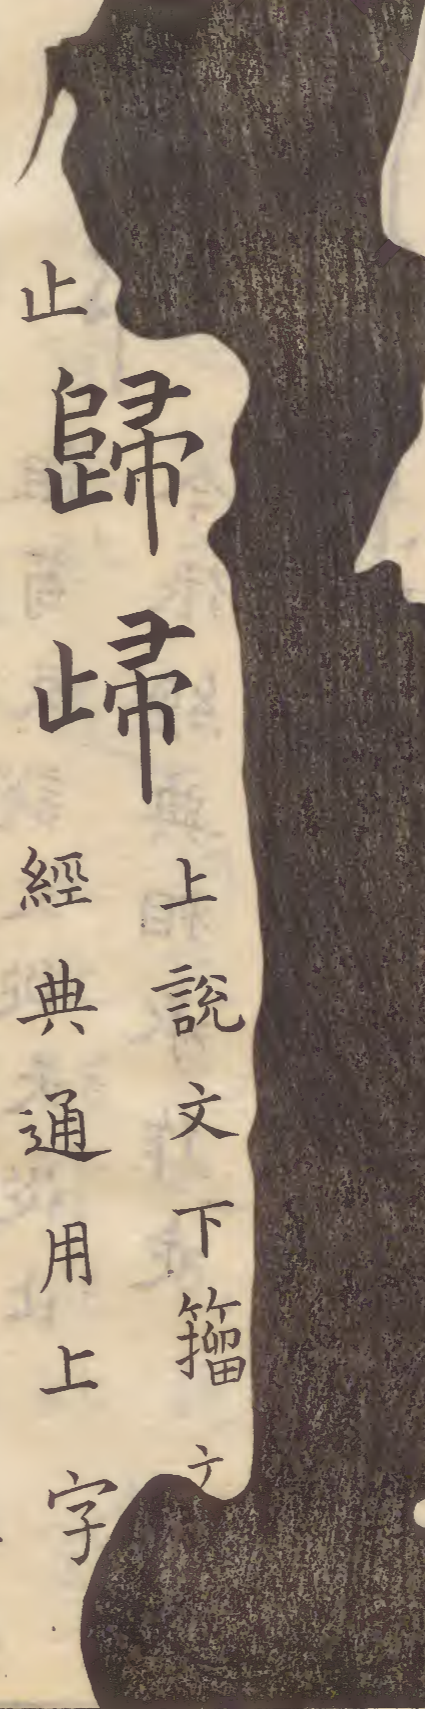 止
歸
㱕
上說文下籀
經典通用上字